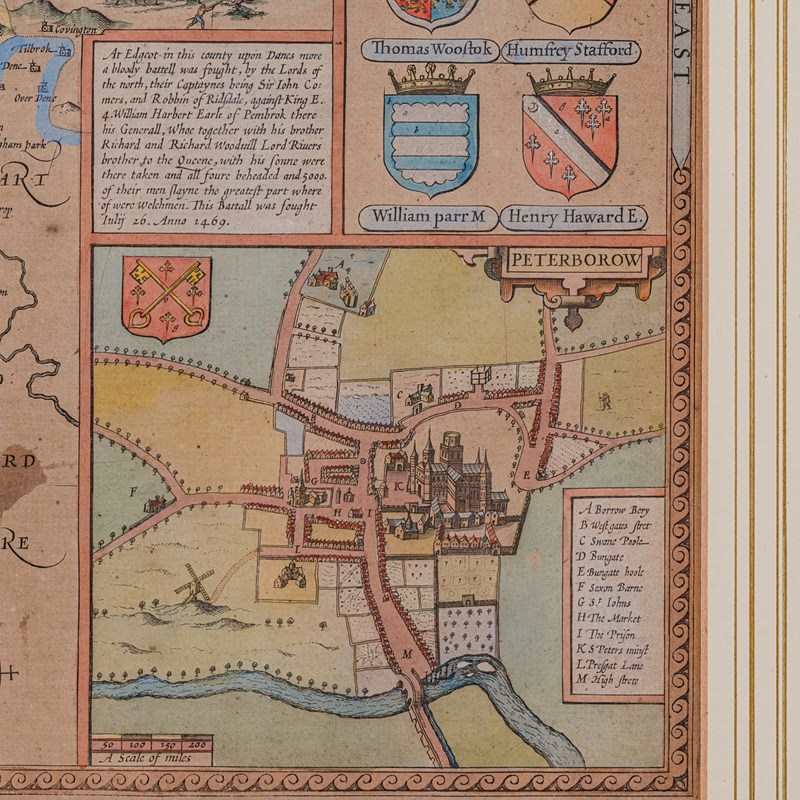 Covington
Tilbrok
Dene
Over Dene
ham park
ART
RD
RE
H
EAST
At Edgcot in this county upon Danes more
a bloody battell was fought, by the Lords of
the north, their Captaynes being Sir Iohn Co:
ners, and Robbin of Ridsdale, against King E.
4. William Harbert Earle of Pembrok there
his Generall, Whoe together with his brother
Richard and Richard Woodvill Lord Rivers
brother to the Queene, with his sonne were
there taken and all foure beheaded and 5000.
of their men slayne the greatest part where
of were Welchmen. This Battall was fought
Iulij 26. Anno 1469.
Thomas Woostok
Humfrey Stafford
William parr M
Henry Haward E.
PETERBOROW
A
B
C
D
E
F
G
H
I
K
L
M
A Borrow Bery
B Westgate stret
C Swane Poole
D Bungate
E Bungate hoole
F Sexon Barne
G Sr. Iohns
H The Market
I The Prison
K S Peters minst
L Presgat Lane
M High strete
50 100 150 200
A Scale of miles